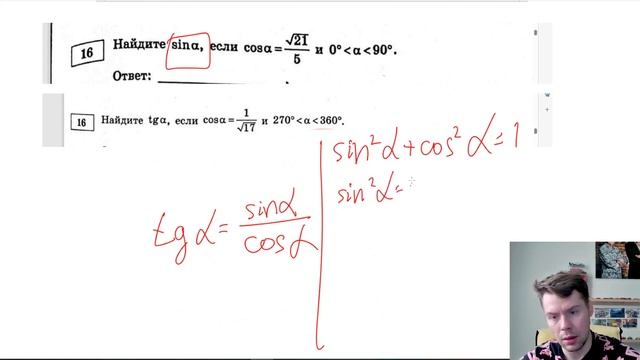 16 Найдите sinα, если cosα = √21/5 и 0° < α < 90°.
Ответ:
16 Найдите tgα, если cosα = 1/√17 и 270° < α < 360°.
sin²α + cos²α = 1
sin²α =
tgα = sinα/cosα